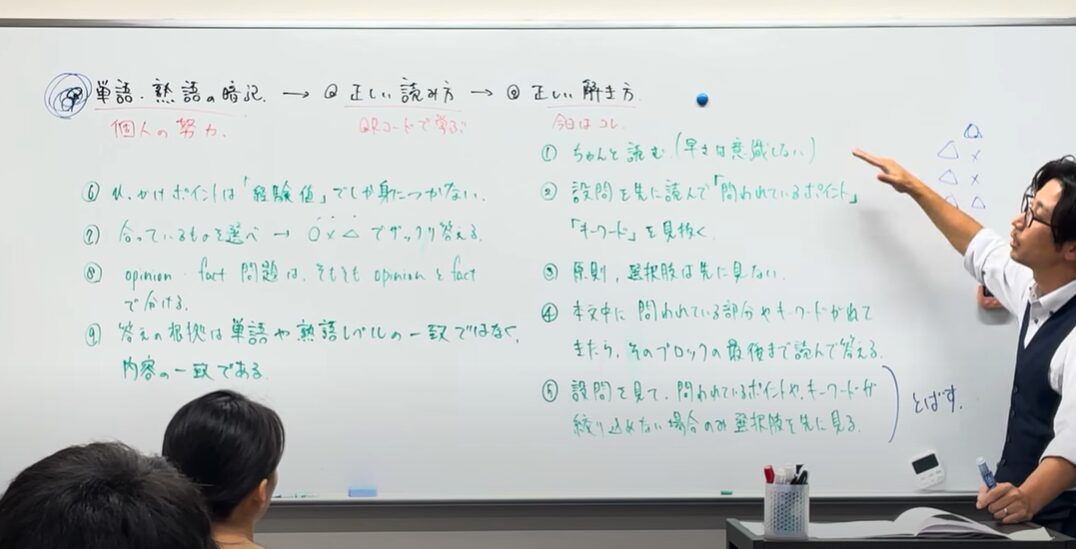 単語・熟語の暗記. → ② 正しい読み方 → ③ 正しい解き方.
個人の努力.
QRコードで学ぶ
今日はコレ.
① ちゃんと読む.(早さは意識しない)
② 設問を先に読んで「問われているポイント」
「キーワード」を見抜く.
③ 原則,選択肢は先に見ない.
④ 本文中に問われている部分やキーワードがでて
きたら,そのブロックの最後まで読んで答える.
⑤ 設問を見て,問われているポイントや,キーワードが
絞り込めない場合のみ選択肢を先に見る.
とばす.
⑥ ひっかけポイントは「経験値」でしか身につかない.
⑦ 合っているものを選べ → ○×△でザックリ答える.
⑧ opinion・fact 問題は,そもそも opinion と fact
で分ける.
⑨ 答えの根拠は単語や熟語レベルの一致ではなく,
内容の一致である.
△ ×
△ ×